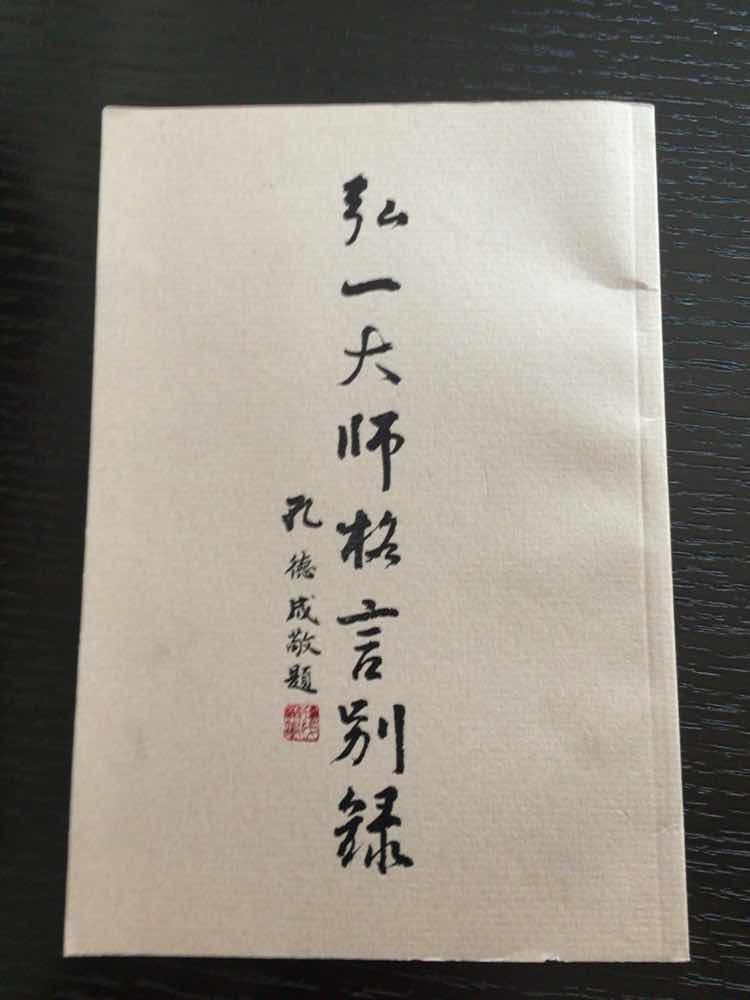 弘一大师格言别録
孔德成敬題